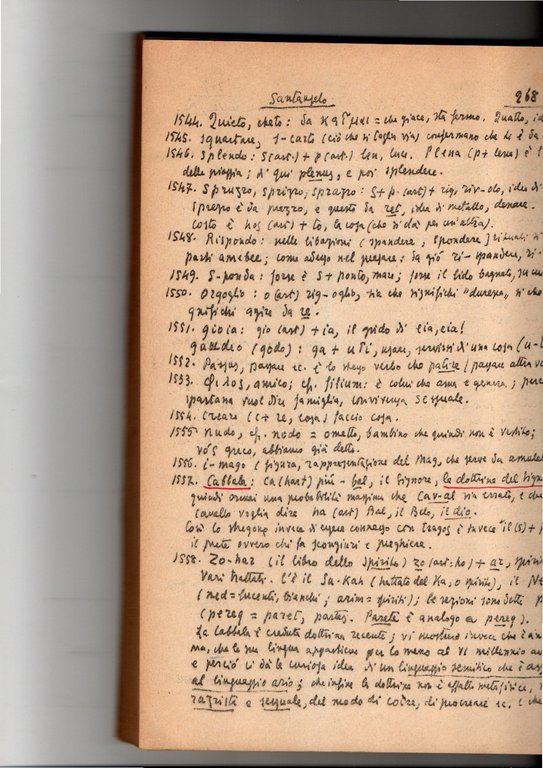 Santangelo 268
1544. Quieto, cheto: da καῖμαι = che giace, sta fermo. Quatto, id
1545. Squartare, s-carto (ciò che si taglia via) confermano che è da
1546. Splendo: s(art.) + p(art.) len, luce. Plena (p + len) è l
della pioggia; di qui plenus, e poi splendere.
1547. Spruzzo, sprizzo, sprazzo: s + p (art) + riz, idea di
sprezzo è da prezzo, e questo da ret, idea di metallo, denaro.
costo è hos (art) + to, la cosa (che si dà per un'altra).
1548. Rispondo: nelle libazioni (spandere, spondere) rituali si
parti amebee; come adesso nel pregare: da ciò ri-spondeu, ri-
1549. S-ponda: forse è s + ponto, mare; forse il lido bagnato, su cui
1550. Orgoglio: o (art) rig-oglio, sia che significhi "durezza", si che
gnifichi agire da re.
1551. gioia: gio (art) + ia, il grido di eia, eia!
gaudeo (godo): ga + uti, usare, servirsi d'una cosa
1552. Passus, passare ec. è lo stesso verbo che patire (passare attra
1553. Φιλος, amico; cf. filium: è colui che ama e genera; per
spartana vuol dire famiglia, convivenza sessuale.
1554. Creare (c + re, cosa) faccio cosa.
1555 nudo, cf. nodo = ometto, bambino che quindi non è vestito;
vo's greco, abbiamo già detto.
1556. i-mago (figura, rappresentazione del Mag, che serve da amulet
1557. Cabbala: ca (hart) più - bal, il signore, la dottrina del Sign
quindi ormai una probabilità massima che Cav-al sia errato, e che
cavallo voglia dire ha (art) Bal, il Belo, il dio.
Così lo stregone invece di essere connesso con tragos è invece "il (s) +
il prete ovvero chi fa scongiuri e preghiere.
1558. Zo-har (il libro dello Spirito) zo (art: ho) + ar, spiri
vari trattati. C'è il Sa-Kah (trattato del Ka, o spirito), il
(ned = lucenti, bianchi; arim = spiriti); le sezioni sono dette
(pereq = paret, partes. Parete è analogo a pereq).
La Cabbala è creduta dottrina recente; vi mostrerò invece che è an
ma, che la sua lingua appartiene per lo meno al VI millennio av
e perciò vi dà la curiosa idea di un linguaggio semitico che è
al linguaggio ario; che infine la dottrina non è affatto metafisica,
razzista e sessuale, del modo di coire, di procreare ec.